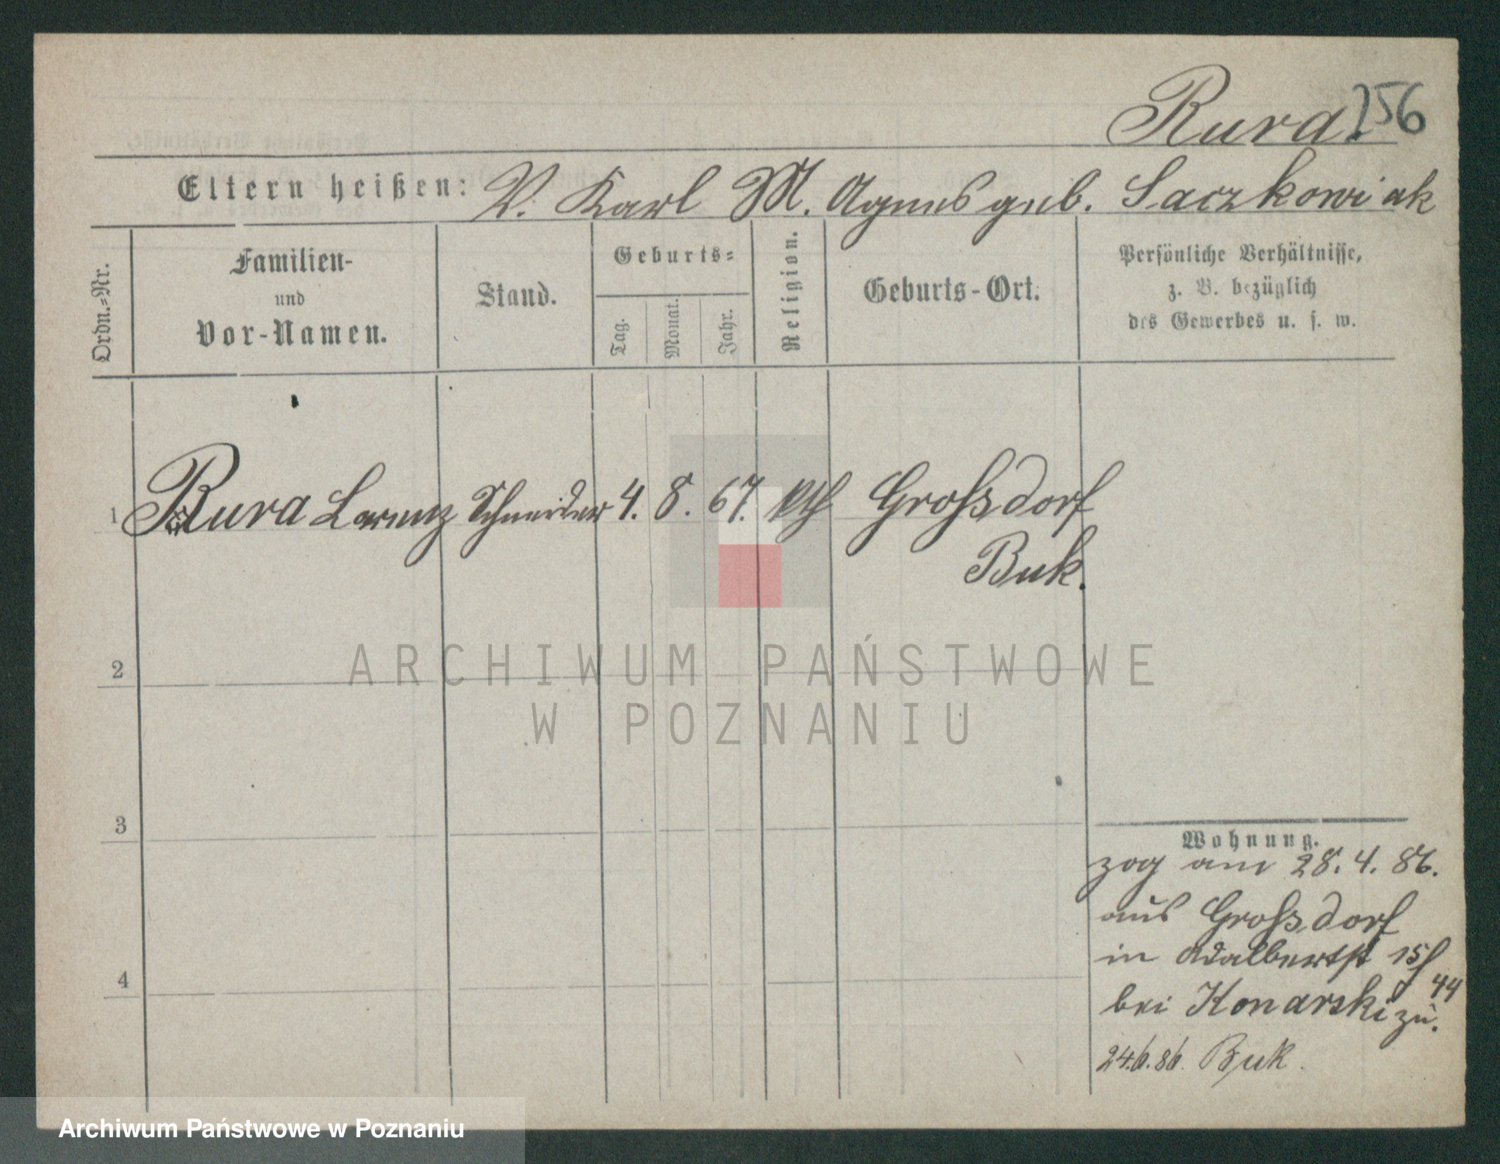 Rura. 256
Eltern heißen: V. Karl M. Agnes geb. Saczkowiak
Ordn.-Nr.
Familien-
und
Vor-Namen.
Stand.
Geburts-
Tag.
Monat.
Jahr.
Religion.
Geburts-Ort.
Persönliche Verhältnisse,
z. B. bezüglich
des Gewerbes u. s. w.
1 Rura Lorenz Schneider 4. 8. 67. kth Großdorf
Buk.
2
3
4
Wohnung.
zog am 28. 4. 86.
aus Großdorf
in Adalbertst 15/
44
bei Konarski zu.
24.6.86. Buk.
ARCHIWUM PAŃSTWOWE
W POZNANIU
Archiwum Państwowe w Poznaniu